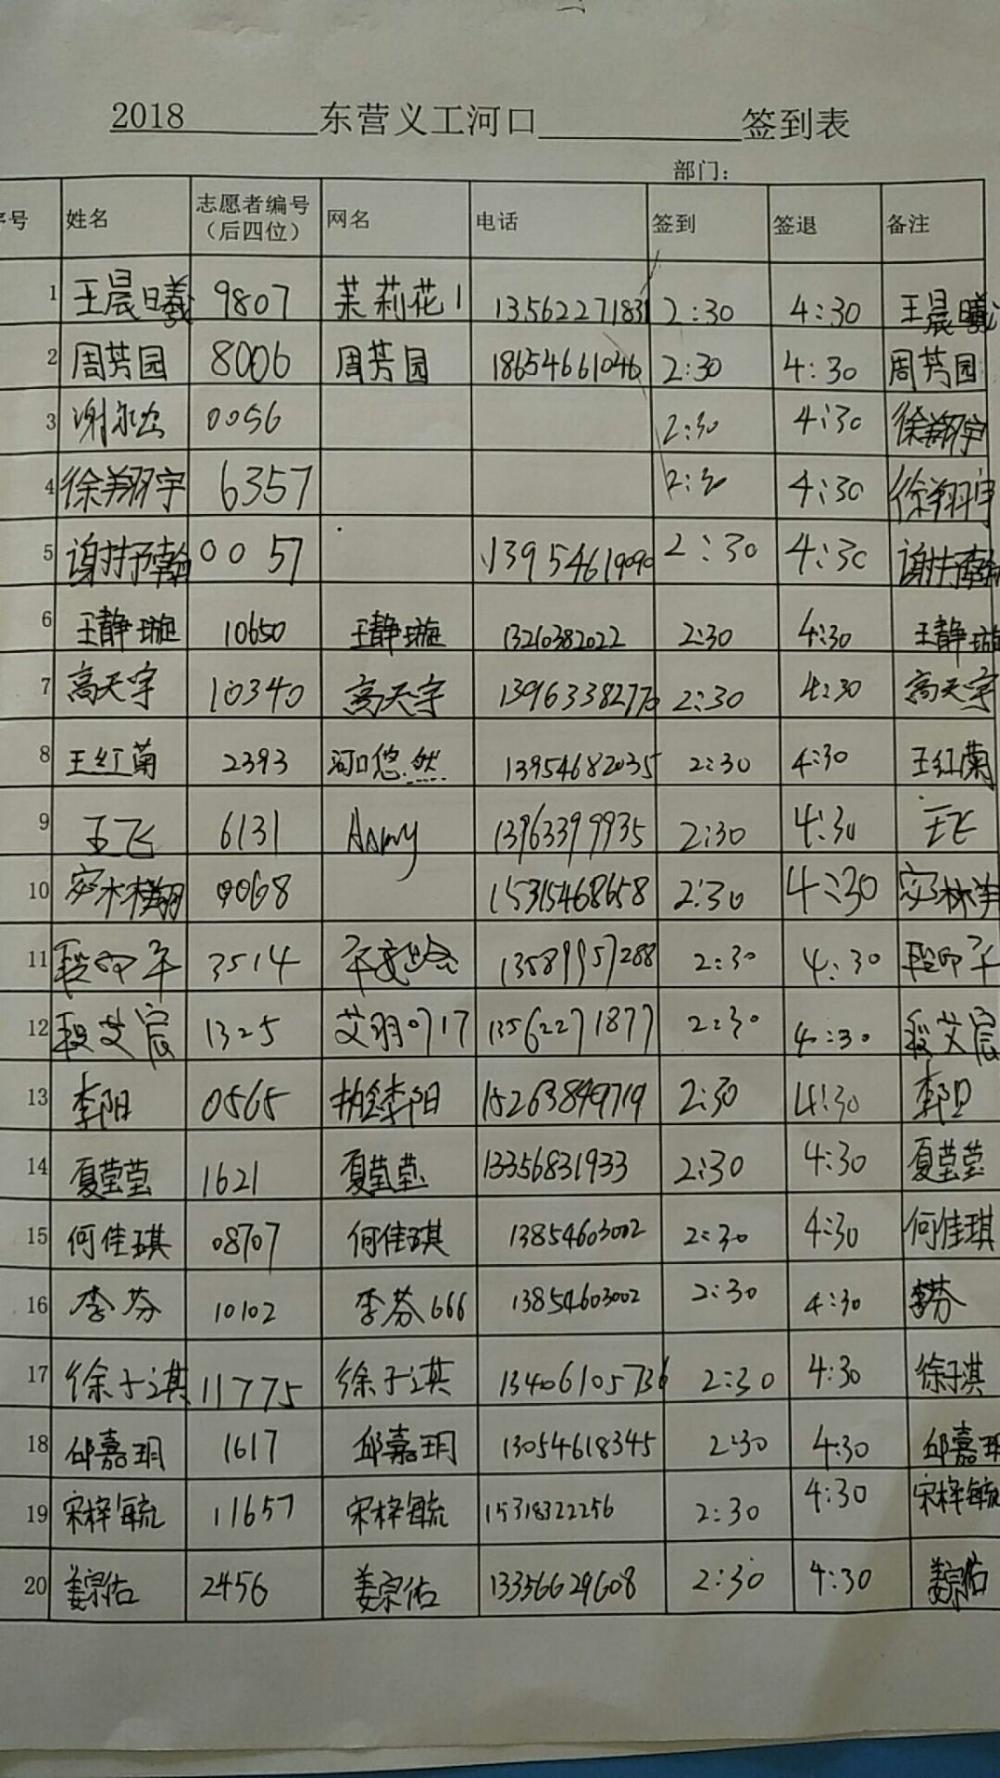 2018 东营义工河口 签到表
部门：
序号 姓名 志愿者编号（后四位） 网名 电话 签到 签退 备注
1 王晨曦 9807 茉莉花1 13562271831 2:30 4:30 王晨曦
2 周芸园 8006 周芸园 18654661046 2:30 4:30 周芸园
3 0056 2:30 4:30 徐翔宇
4 徐翔宇 6357 2:30 4:30 徐翔宇
5 0057 2:30 4:30
6 王静璇 10650 王静璇 13210382022 2:30 4:30 王静璇
7 高天宇 10340 高天宇 2:30 4:30 高天宇
8 王红菊 2393 河口悠然 13954682035 2:30 4:30 王红菊
9 王飞 6131 13963399935 2:30 4:30 王飞
10 0068 15315468658 2:30 4:30
11 3514 13589957288 2:30 4:30
12 段艾宸 1325 艾羽0717 13562271877 2:30 4:30 段艾宸
13 李阳 0565 15263849719 2:30 4:30 李阳
14 夏莹莹 1621 夏莹莹 13356831933 2:30 4:30 夏莹莹
15 何佳琪 08707 何佳琪 13854603002 2:30 4:30 何佳琪
16 李芬 10102 李芬666 13854603002 2:30 4:30 李芬
17 徐子淇 11775 徐子淇 13406105736 2:30 4:30 徐子淇
18 邱嘉玥 1617 邱嘉玥 13054618345 2:30 4:30 邱嘉玥
19 宋梓毓 11657 宋梓毓 15318322256 2:30 4:30 宋梓毓
20 姜宗佑 2456 姜宗佑 13356629608 2:30 4:30 姜宗佑